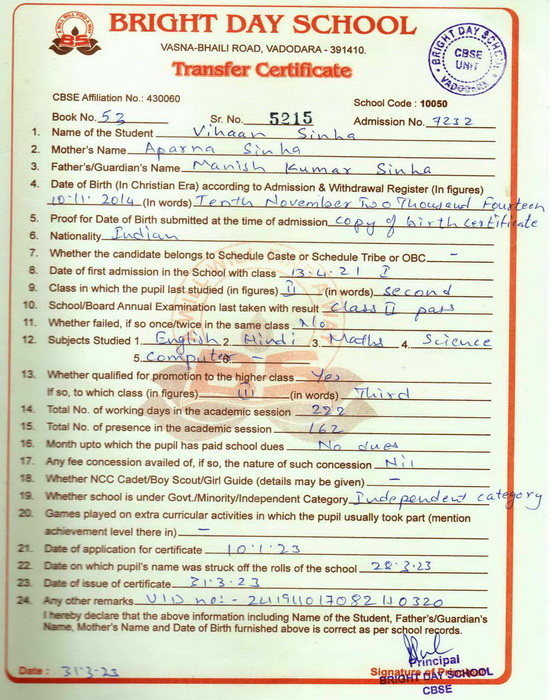 BRIGHT DAY SCHOOL
VASNA-BHAILI ROAD, VADODARA - 391410.
Transfer Certificate
BRIGHT DAY SCHOOL
CBSE
UNIT
VADODARA
CBSE Affiliation No.: 430060
School Code : 10050
Book No. 52 Sr. No. 5215 Admission No. 7232
1. Name of the Student Vihaan Sinha
2. Mother's Name Aparna Sinha
3. Father's/Guardian's Name Manish Kumar Sinha
4. Date of Birth (In Christian Era) according to Admission & Withdrawal Register (In figures)
10.11.2014 (In words) Tenth November Two Thousand Fourteen
5. Proof for Date of Birth submitted at the time of admission copy of birth certificate
6. Nationality Indian
7. Whether the candidate belongs to Schedule Caste or Schedule Tribe or OBC -
8. Date of first admission in the School with class 13.4.21 I
9. Class in which the pupil last studied (in figures) II (in words) second
10. School/Board Annual Examination last taken with result class II pass
11. Whether failed, if so once/twice in the same class No
12. Subjects Studied 1. English 2. Hindi 3. Maths 4. Science
5. Computer 6. -
13. Whether qualified for promotion to the higher class Yes
If so, to which class (in figures) III (in words) Third
14. Total No. of working days in the academic session 222
15. Total No. of presence in the academic session 162
16. Month upto which the pupil has paid school dues No dues
17. Any fee concession availed of, if so, the nature of such concession Nil
18. Whether NCC Cadet/Boy Scout/Girl Guide (details may be given) -
19. Whether school is under Govt./Minority/Independent Category Independent category
20. Games played on extra curricular activities in which the pupil usually took part (mention
achievement level there in) -
21. Date of application for certificate 10.1.23
22. Date on which pupil's name was struck off the rolls of the school 28.3.23
23. Date of issue of certificate 31.3.23
24. Any other remarks UID no:-
I hereby declare that the above information including Name of the Student, Father's/Guardian's
Name, Mother's Name and Date of Birth furnished above is correct as per school records.
Date : 31.3.23
Signature of Principal
Principal
BRIGHT DAY SCHOOL
CBSE